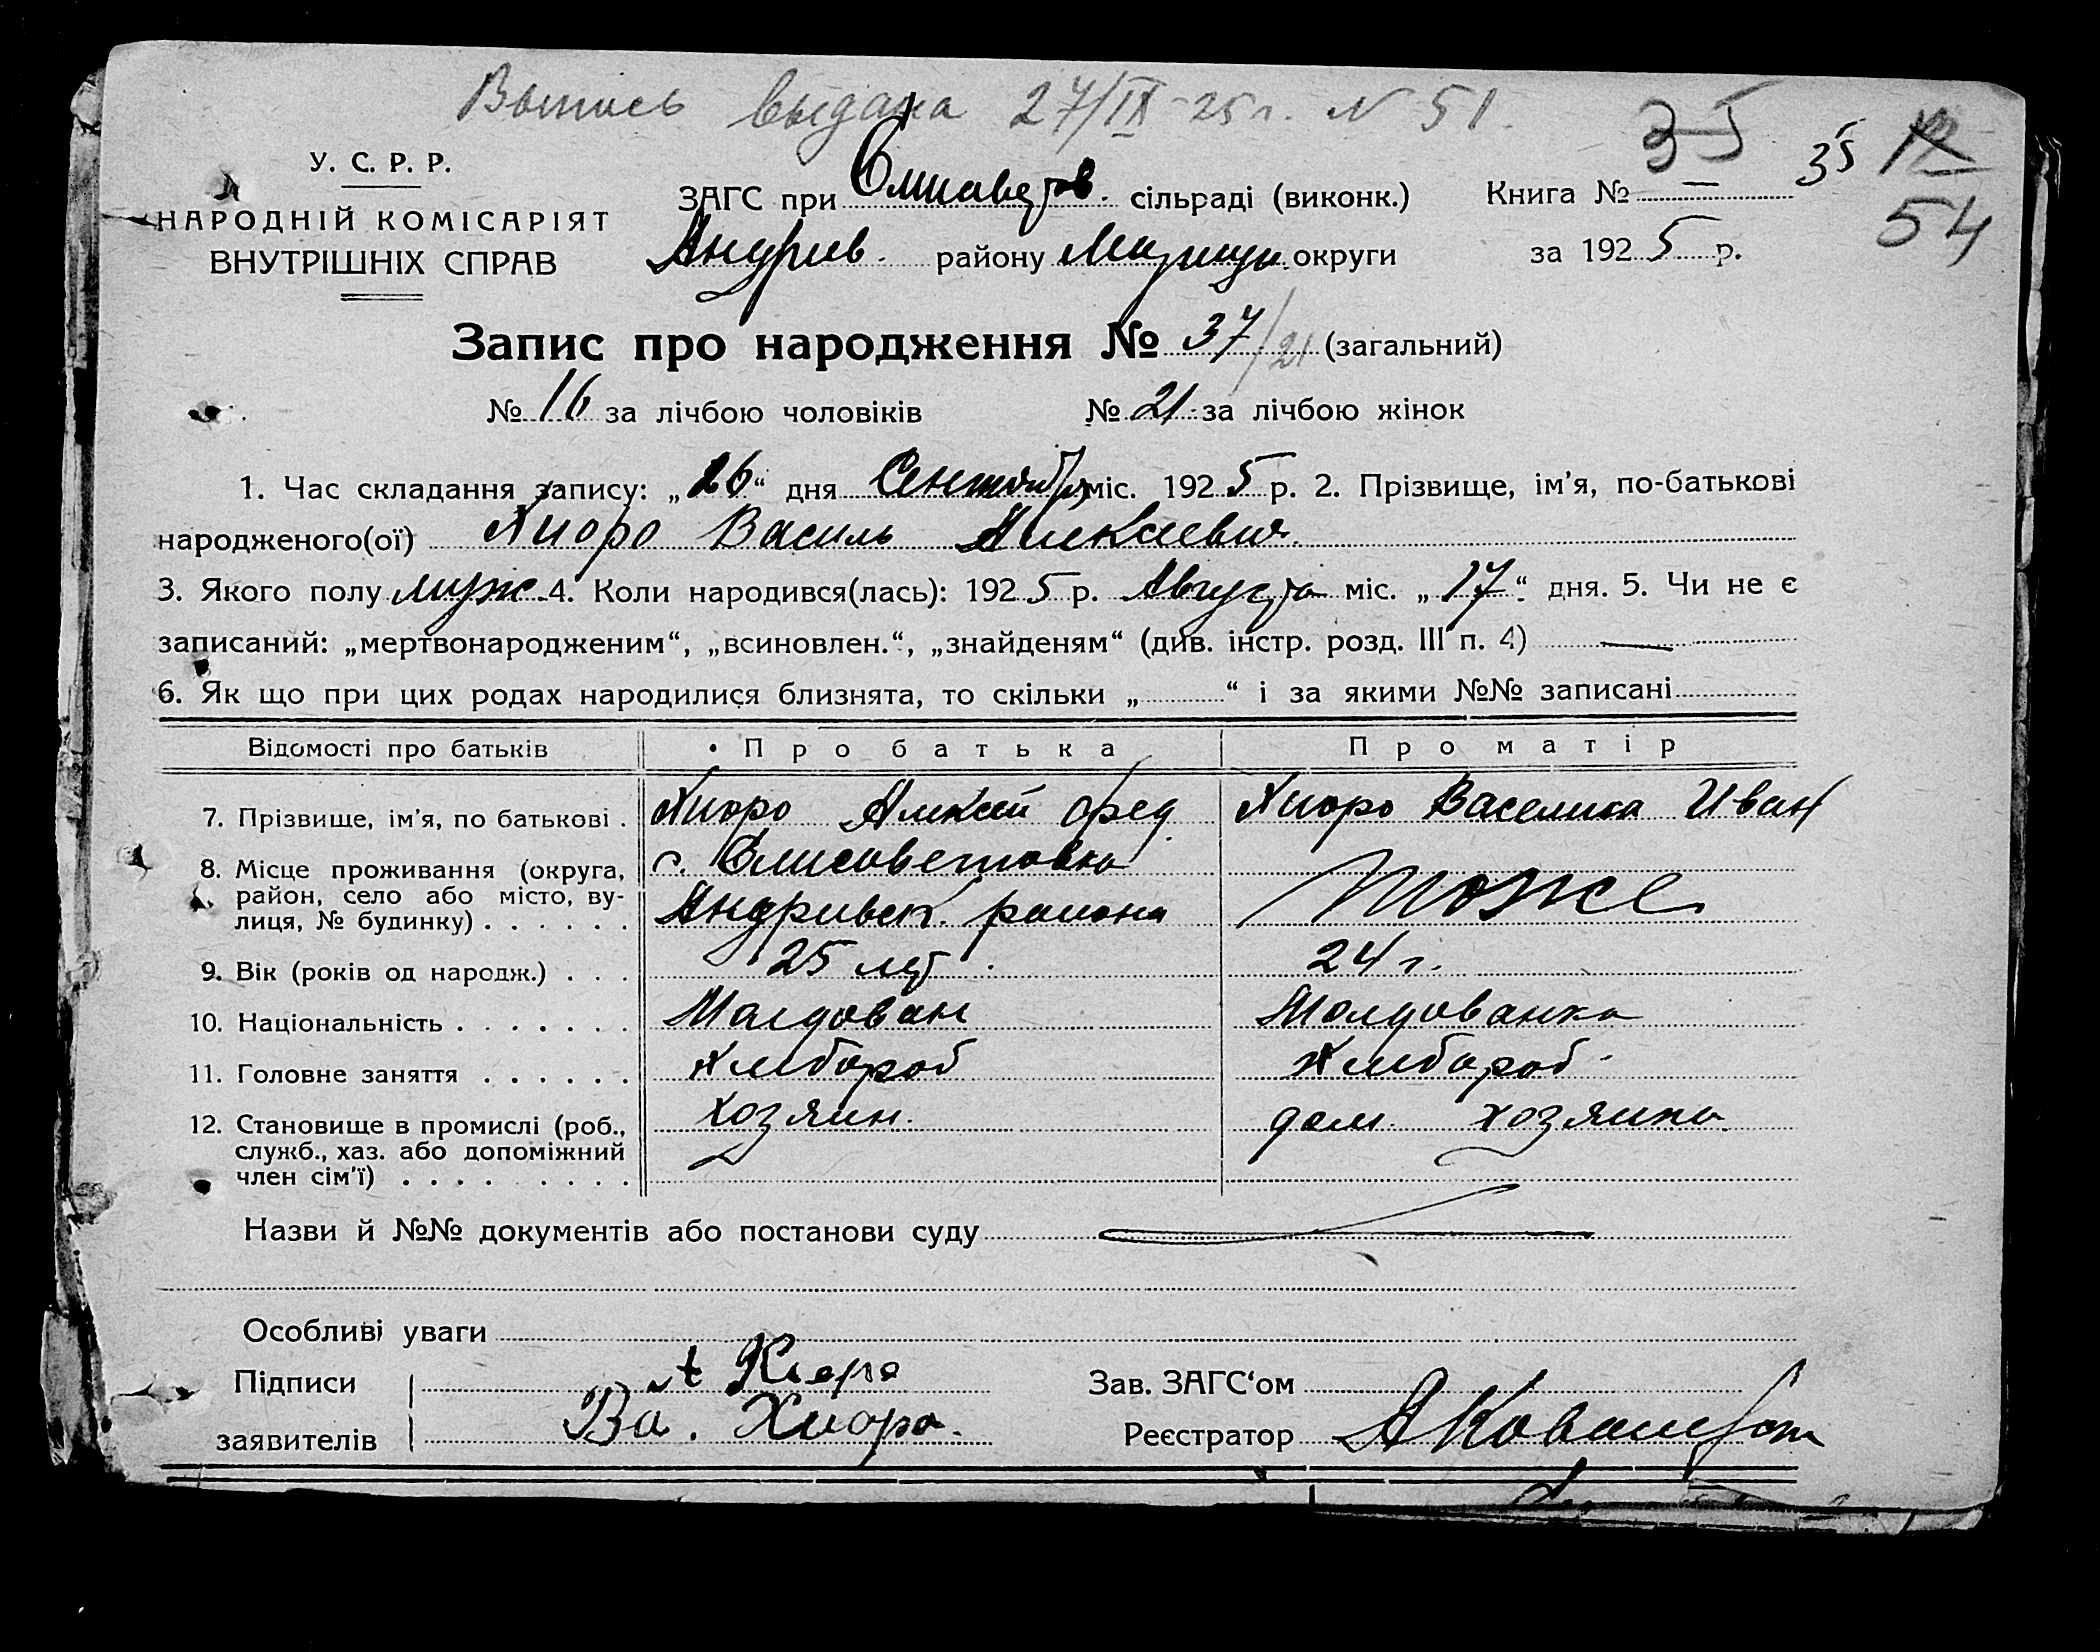 Выпись выдана 27/IX-25 г. N 51.
35 35 12
54
У. С. Р. Р.
НАРОДНІЙ КОМІСАРІЯТ
ВНУТРІШНІХ СПРАВ
ЗАГС при Елисаветов. сільраді (виконк.) Книга №
Андрив. району Мариуп. округи за 1925 р.
Запис про народження № 37/21 (загальний)
№ 16 за лічбою чоловіків № 21 за лічбою жінок
1. Час складання запису: „26“ дня Сентября міс. 1925 р. 2. Прізвище, ім’я, по-батькові
народженого(ої) Хиоро Василь Алексеевич
3. Якого полу муж. 4. Коли народився(лась): 1925 р. Августа міс. „17“ дня. 5. Чи не є
записаний: „мертвонародженим“, „всиновлен.“, „знайденям“ (див. інстр. розд. III п. 4) —
6. Як що при цих родах народилися близнята, то скільки „ “ і за якими №№ записані
Відомості про батьків Про батька Про матір
7. Прізвище, ім’я, по батькові . Хиоро Алексей Фед Хиоро Васелиса Иван
8. Місце проживання (округа, с. Елисоветовка
район, село або місто, ву- Андривск. района тоже
лиця, № будинку) . . . . . .
9. Вік (років од народж.) . . . 25 лет 24 г.
10. Національність . . . . . . . Молдован Молдованка
11. Головне заняття . . . . . . Хлебороб Хлебороб
12. Становище в промислі (роб., хозяин. дом. хозяика.
служб., хаз. або допоміжний
член сім’ї) . . . . . . . .
Назви й №№ документів або постанови суду
Особливі уваги
Підписи Зав. ЗАГС‘ом
заявителів Ва. Хиоро. Реєстратор